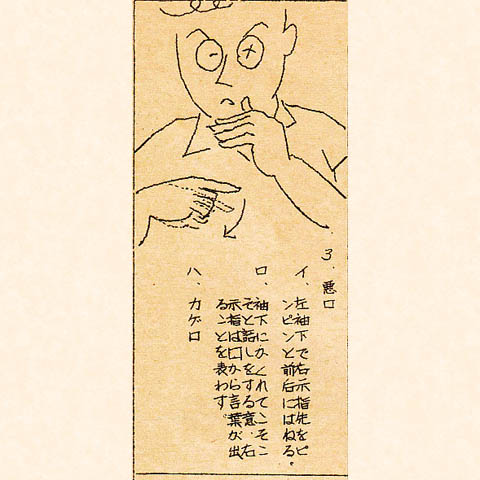 3. 悪口
イ、左袖下で右示指先をピ
ンピンと前后にはねる。
ロ、袖下にかくれてこそこ
そと話しをする意、右
示指は口から言葉が出
ることを表わす
ハ、カゲ口